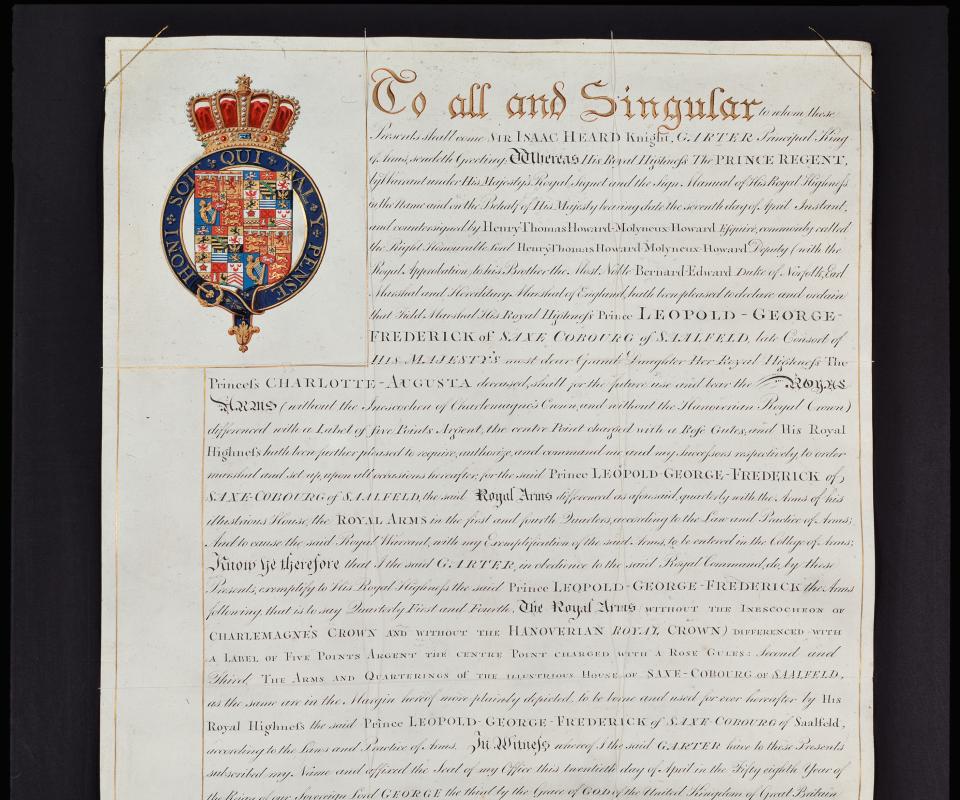 HONI SOIT QUI MAL Y PENSE
To all and Singular to whom these
Presents shall come Sir ISAAC HEARD Knight, GARTER Principal King
of Arms, sendeth Greeting. Whereas His Royal Highneſs The PRINCE REGENT,
by Warrant under His Majesty's Royal Signet and the Sign Manual of His Royal Highneſs
in the Name and in the Behalf of His Majesty bearing date the seventh day of April Instant,
and countersigned by Henry Thomas Howard-Molyneux-Howard Esquire, commonly called
the Right Honourable Lord Henry Thomas Howard Molyneux-Howard Deputy (with the
Royal Approbation) to his Brother the Most Noble Bernard-Edward Duke of Norfolk, Earl
Marshal and Hereditary Marshal of England, hath been pleased to declare and ordain
that Field Marshal His Royal Highneſs Prince LEOPOLD-GEORGE-
FREDERICK of SAXE COBOURG of SAALFELD, late Consort of
HIS MAJESTY'S most dear Grand Daughter Her Royal Highneſs The
Princeſs CHARLOTTE-AUGUSTA deceased, shall for the future use and bear the ROYAL
ARMS (without the Inescocheon of Charlemagne's Crown, and without the Hanoverian Royal Crown)
differenced with a Label of five Points Argent, the centre Point charged with a Rose Gules, and His Royal
Highneſs hath been further pleased to require, authorize, and command me and my Succeſsors respectively to order
marshal and set up, upon all occasions hereafter, for the said Prince LEOPOLD-GEORGE-FREDERICK of
SAXE-COBOURG of SAALFELD, the said Royal Arms differenced as aforesaid, quarterly with the Arms of his
illustrious House, the ROYAL ARMS in the first and fourth Quarters, according to the Law and Practice of Arms;
And to cause the said Royal Warrant, with my Exemplification of the said Arms, to be entered in the College of Arms;
Know Ye therefore that I the said GARTER, in obedience to the said Royal Command, do, by these
Presents, exemplify to His Royal Highneſs the said Prince LEOPOLD-GEORGE-FREDERICK the Arms
following, that is to say Quarterly First and Fourth, The Royal Arms (WITHOUT THE INESCOCHEON OF
CHARLEMAGNE'S CROWN AND WITHOUT THE HANOVERIAN ROYAL CROWN) DIFFERENCED WITH
A LABEL OF FIVE POINTS ARGENT THE CENTRE POINT CHARGED WITH A ROSE GULES: Second and
Third, THE ARMS AND QUARTERINGS OF THE ILLUSTRIOUS HOUSE OF SAXE-COBOURG OF SAALFELD,
as the same are in the Margin hereof more plainly depicted, to be borne and used for ever hereafter by His
Royal Highneſs the said Prince LEOPOLD-GEORGE-FREDERICK of SAXE-COBOURG of Saalfeld,
according to the Laws and Practice of Arms. In Witneſs whereof I the said GARTER have to these Presents
subscribed my Name and affixed the Seal of my Office this twentieth day of April in the Fifty eighth Year of
the Reign of our Sovereign Lord GEORGE the third by the Grace of GOD of the United Kingdom of Great Britain